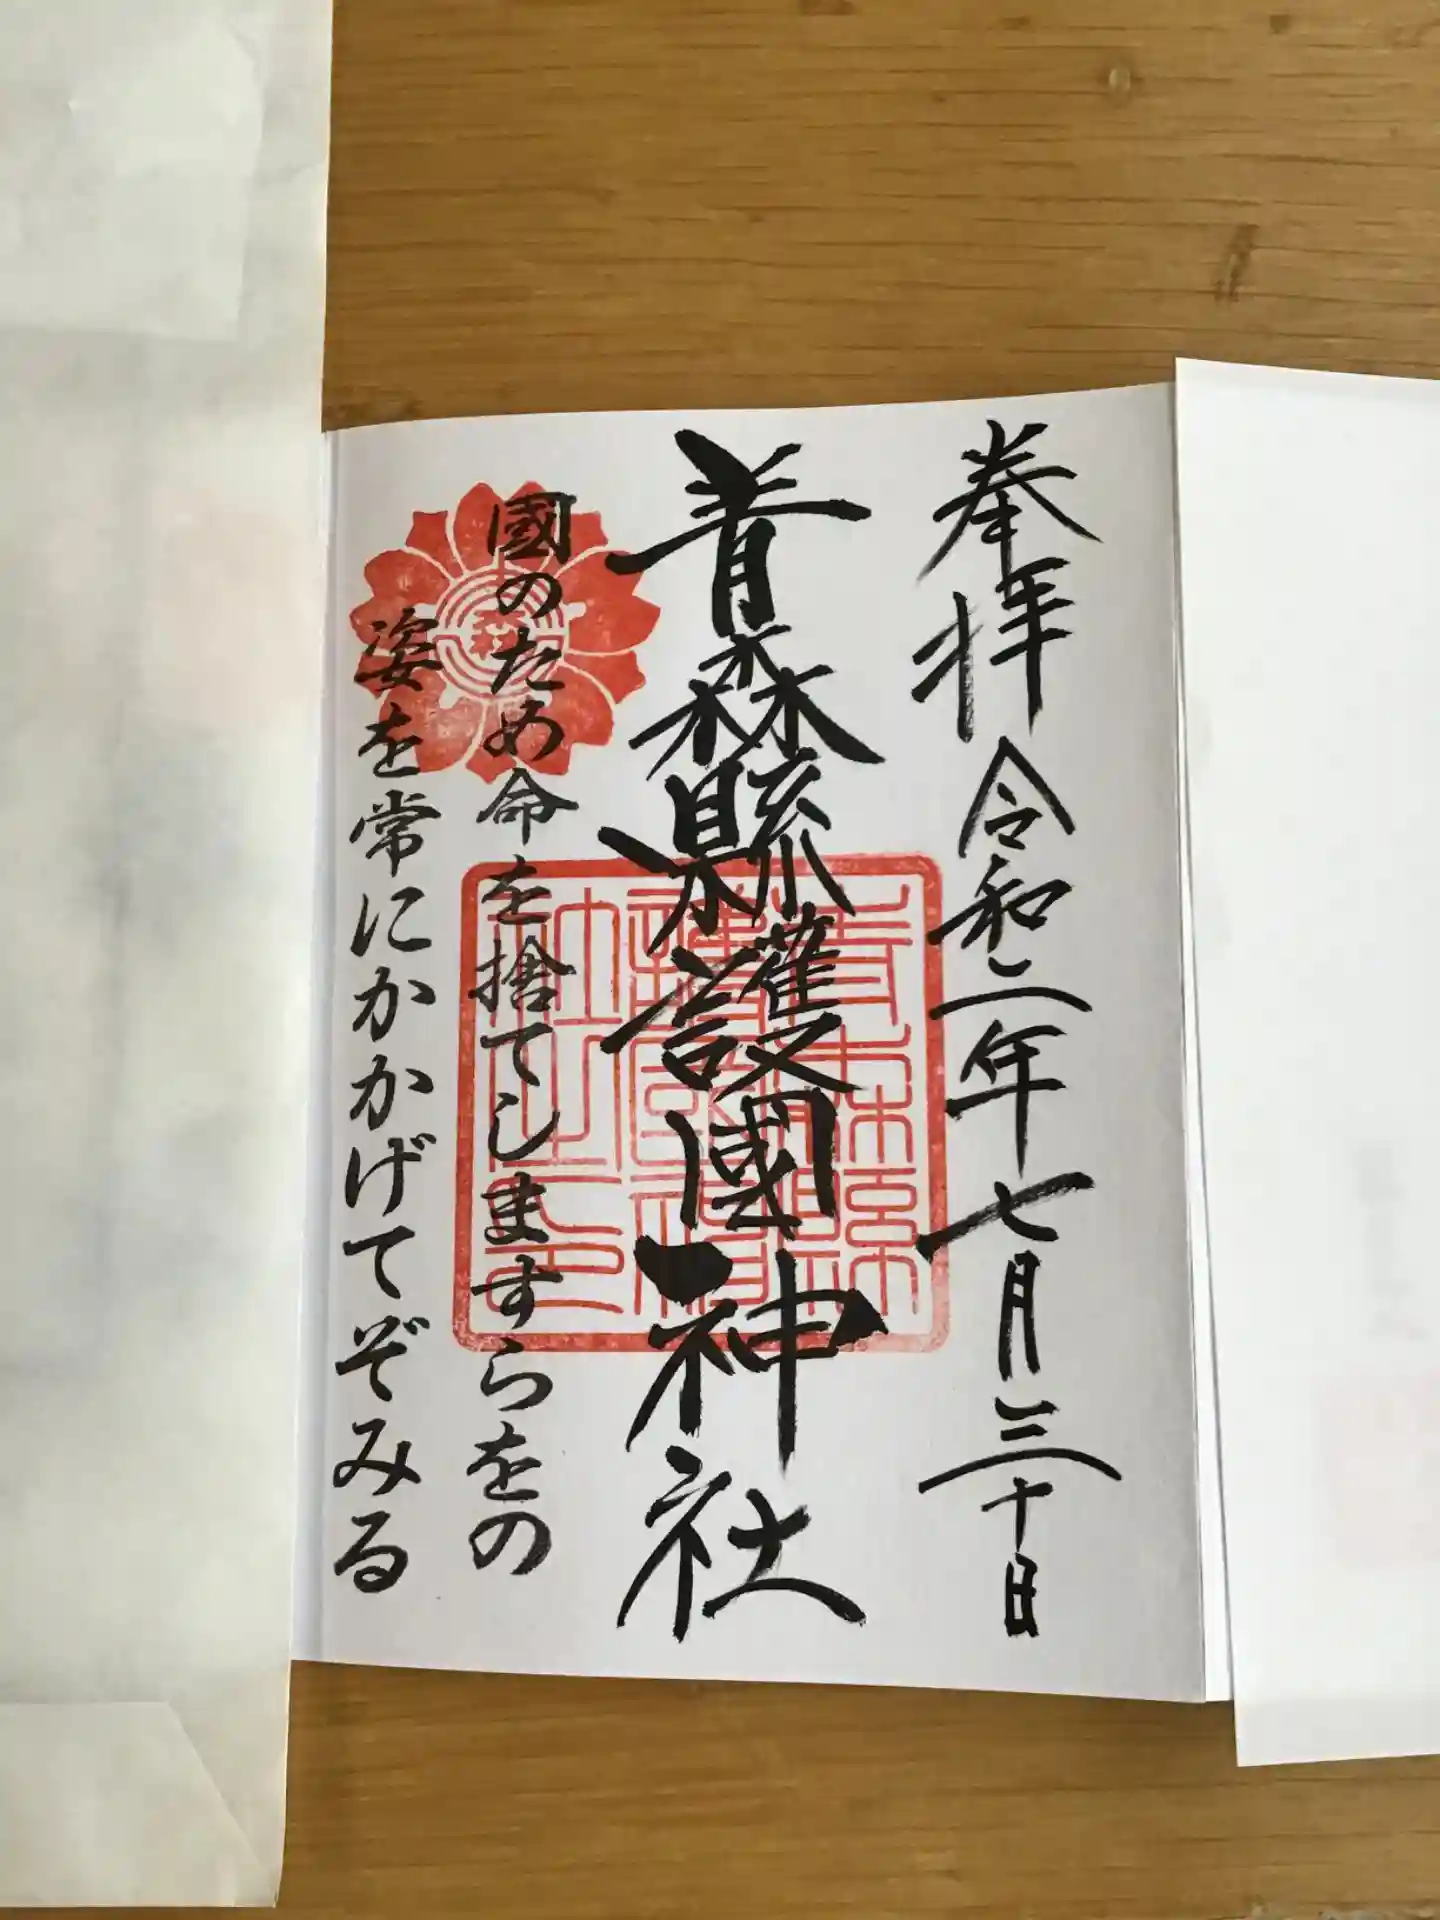 奉拝 令和二年七月三十日
青森縣護國神社
國のため命を捨てしますらをの
姿を常にかかげてぞみる
青森縣護國神社之印
青森